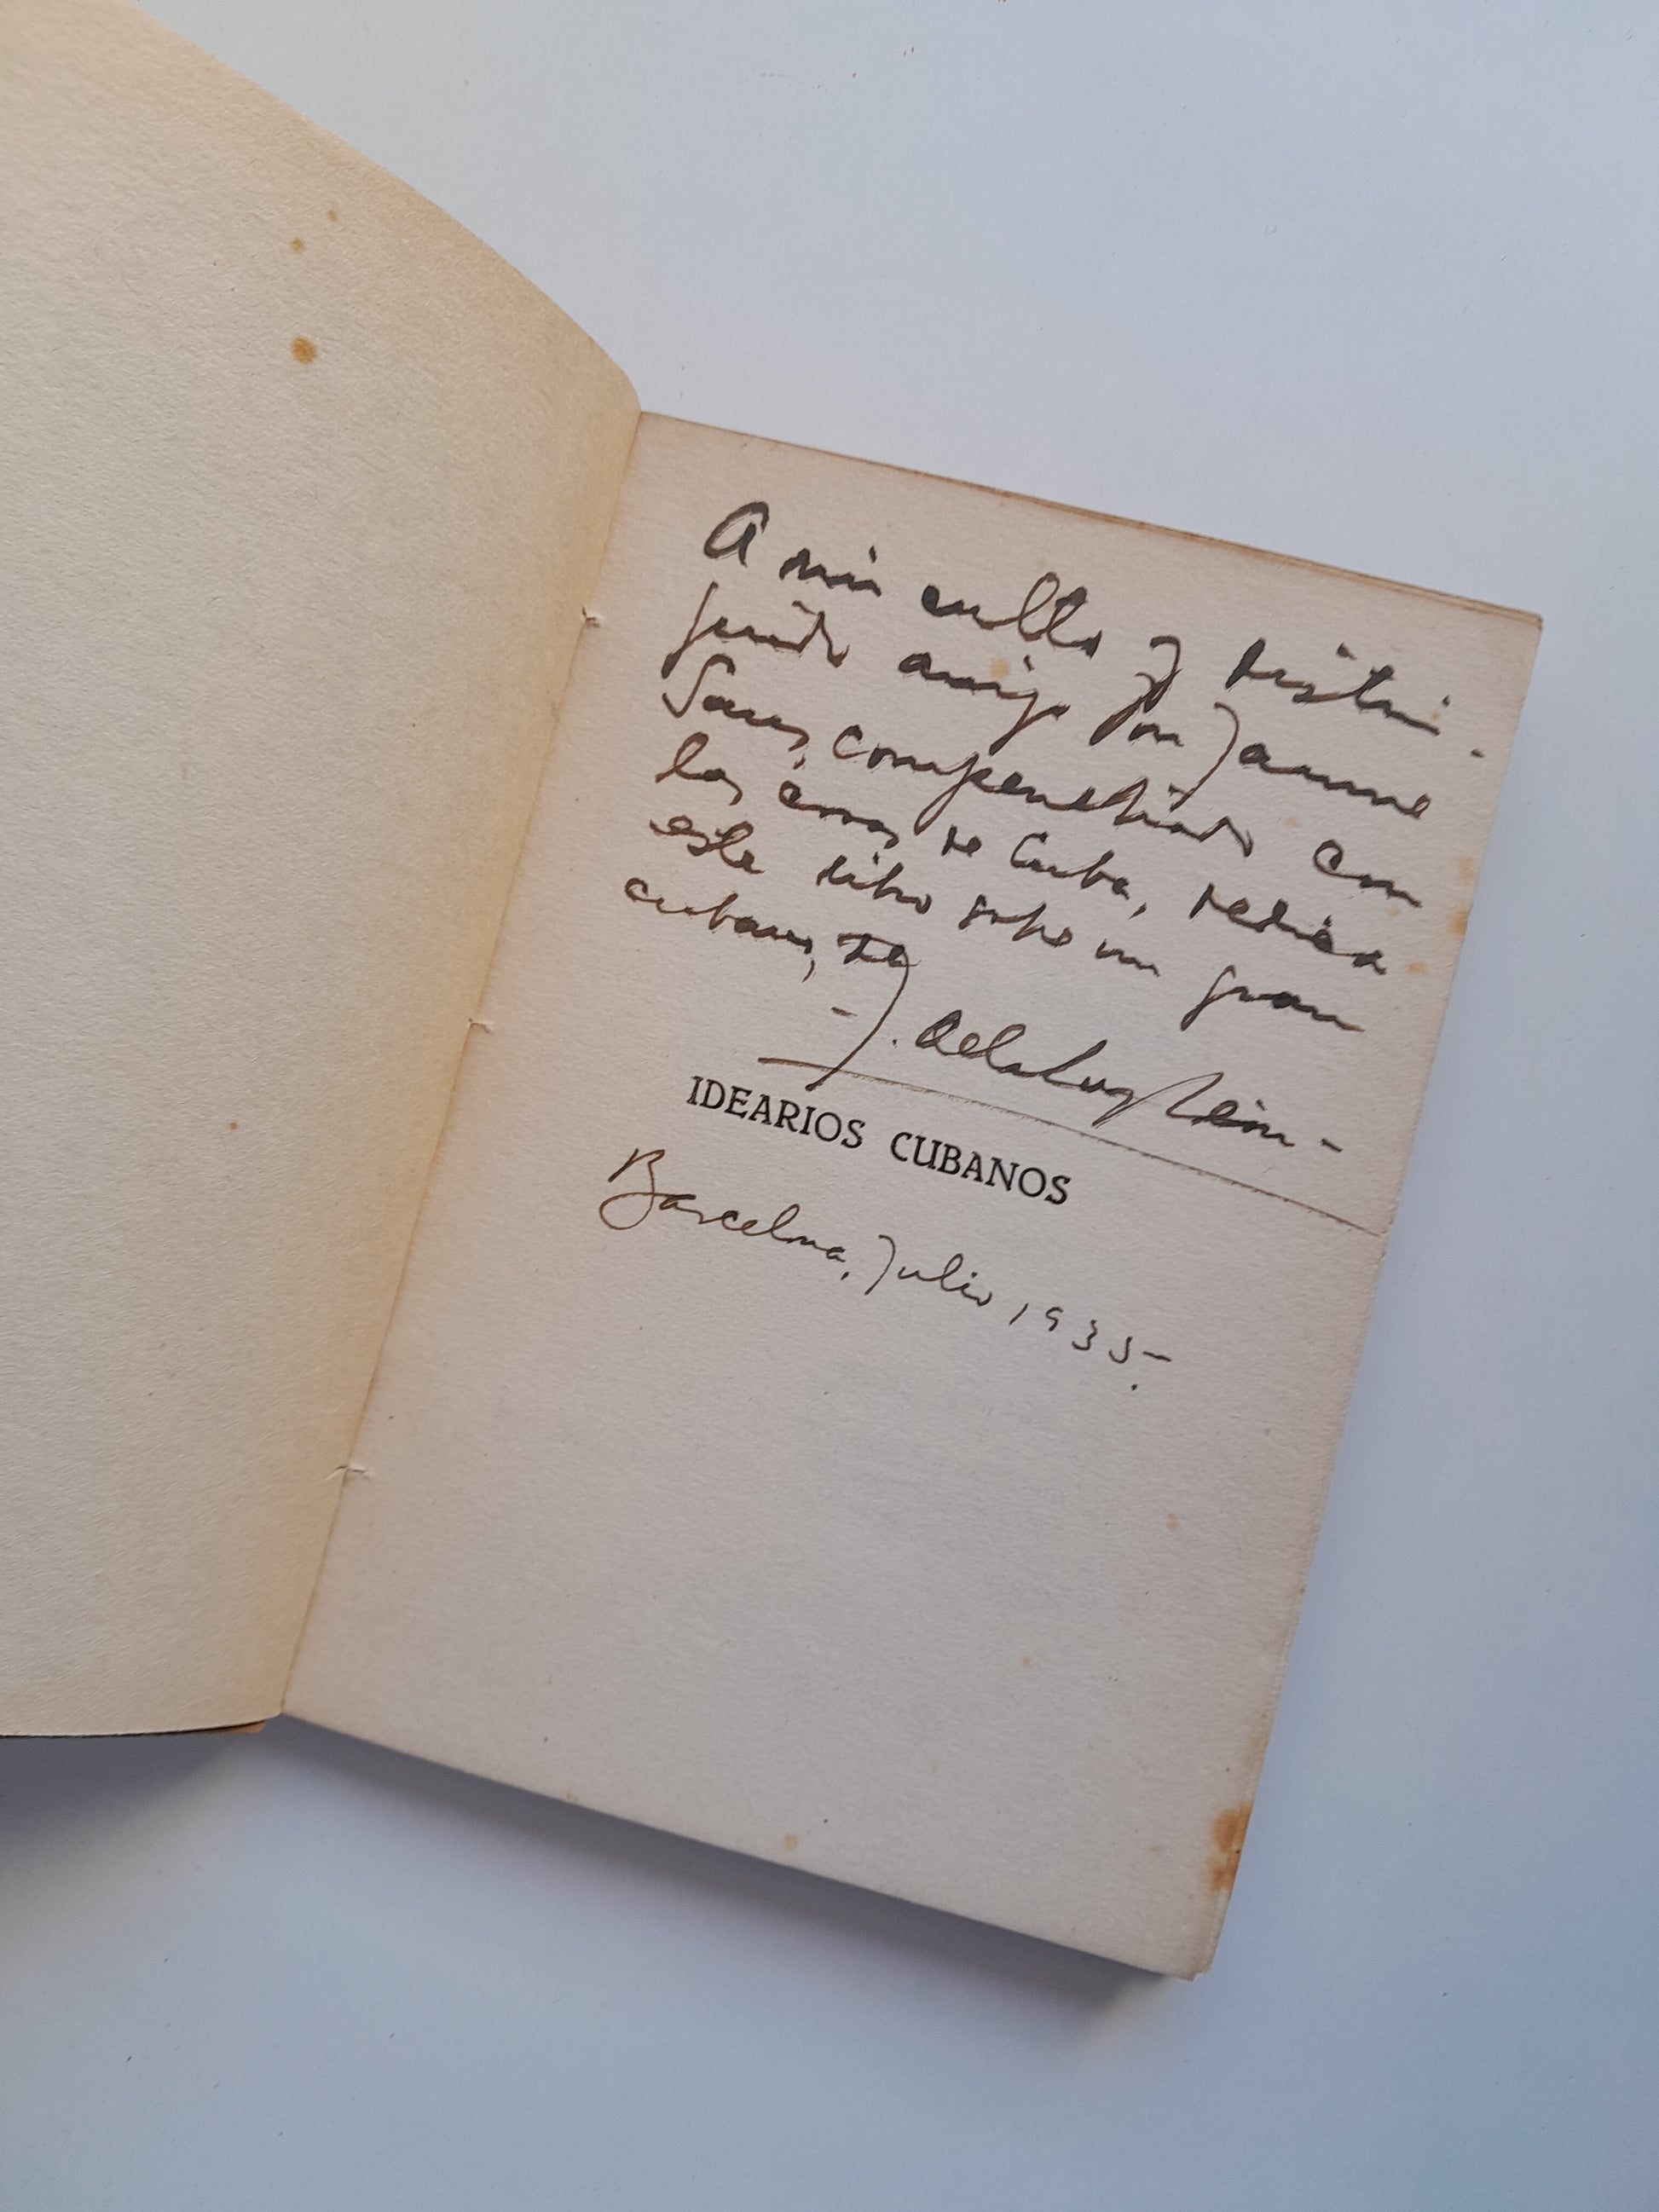 A mi culto y distin-
guido amigo Don Jaume
Sans, compenetrado con
las cosas de Cuba, dedica
este libro sobre un gran
cubano,
- J. de la Luz León -
IDEARIOS CUBANOS
Barcelona, Julio, 1935.